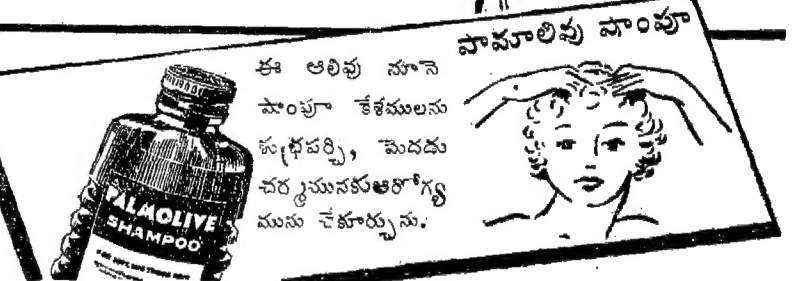 పామాలివు షాంపూ
ఈ ఆలివు నూనె
షాంపూ కేశములను
శుభ్రపర్చి, మెదడు
చర్మమునకుఆరోగ్య
మును చేకూర్చును.
PALMOLIVE
SHAMPOO